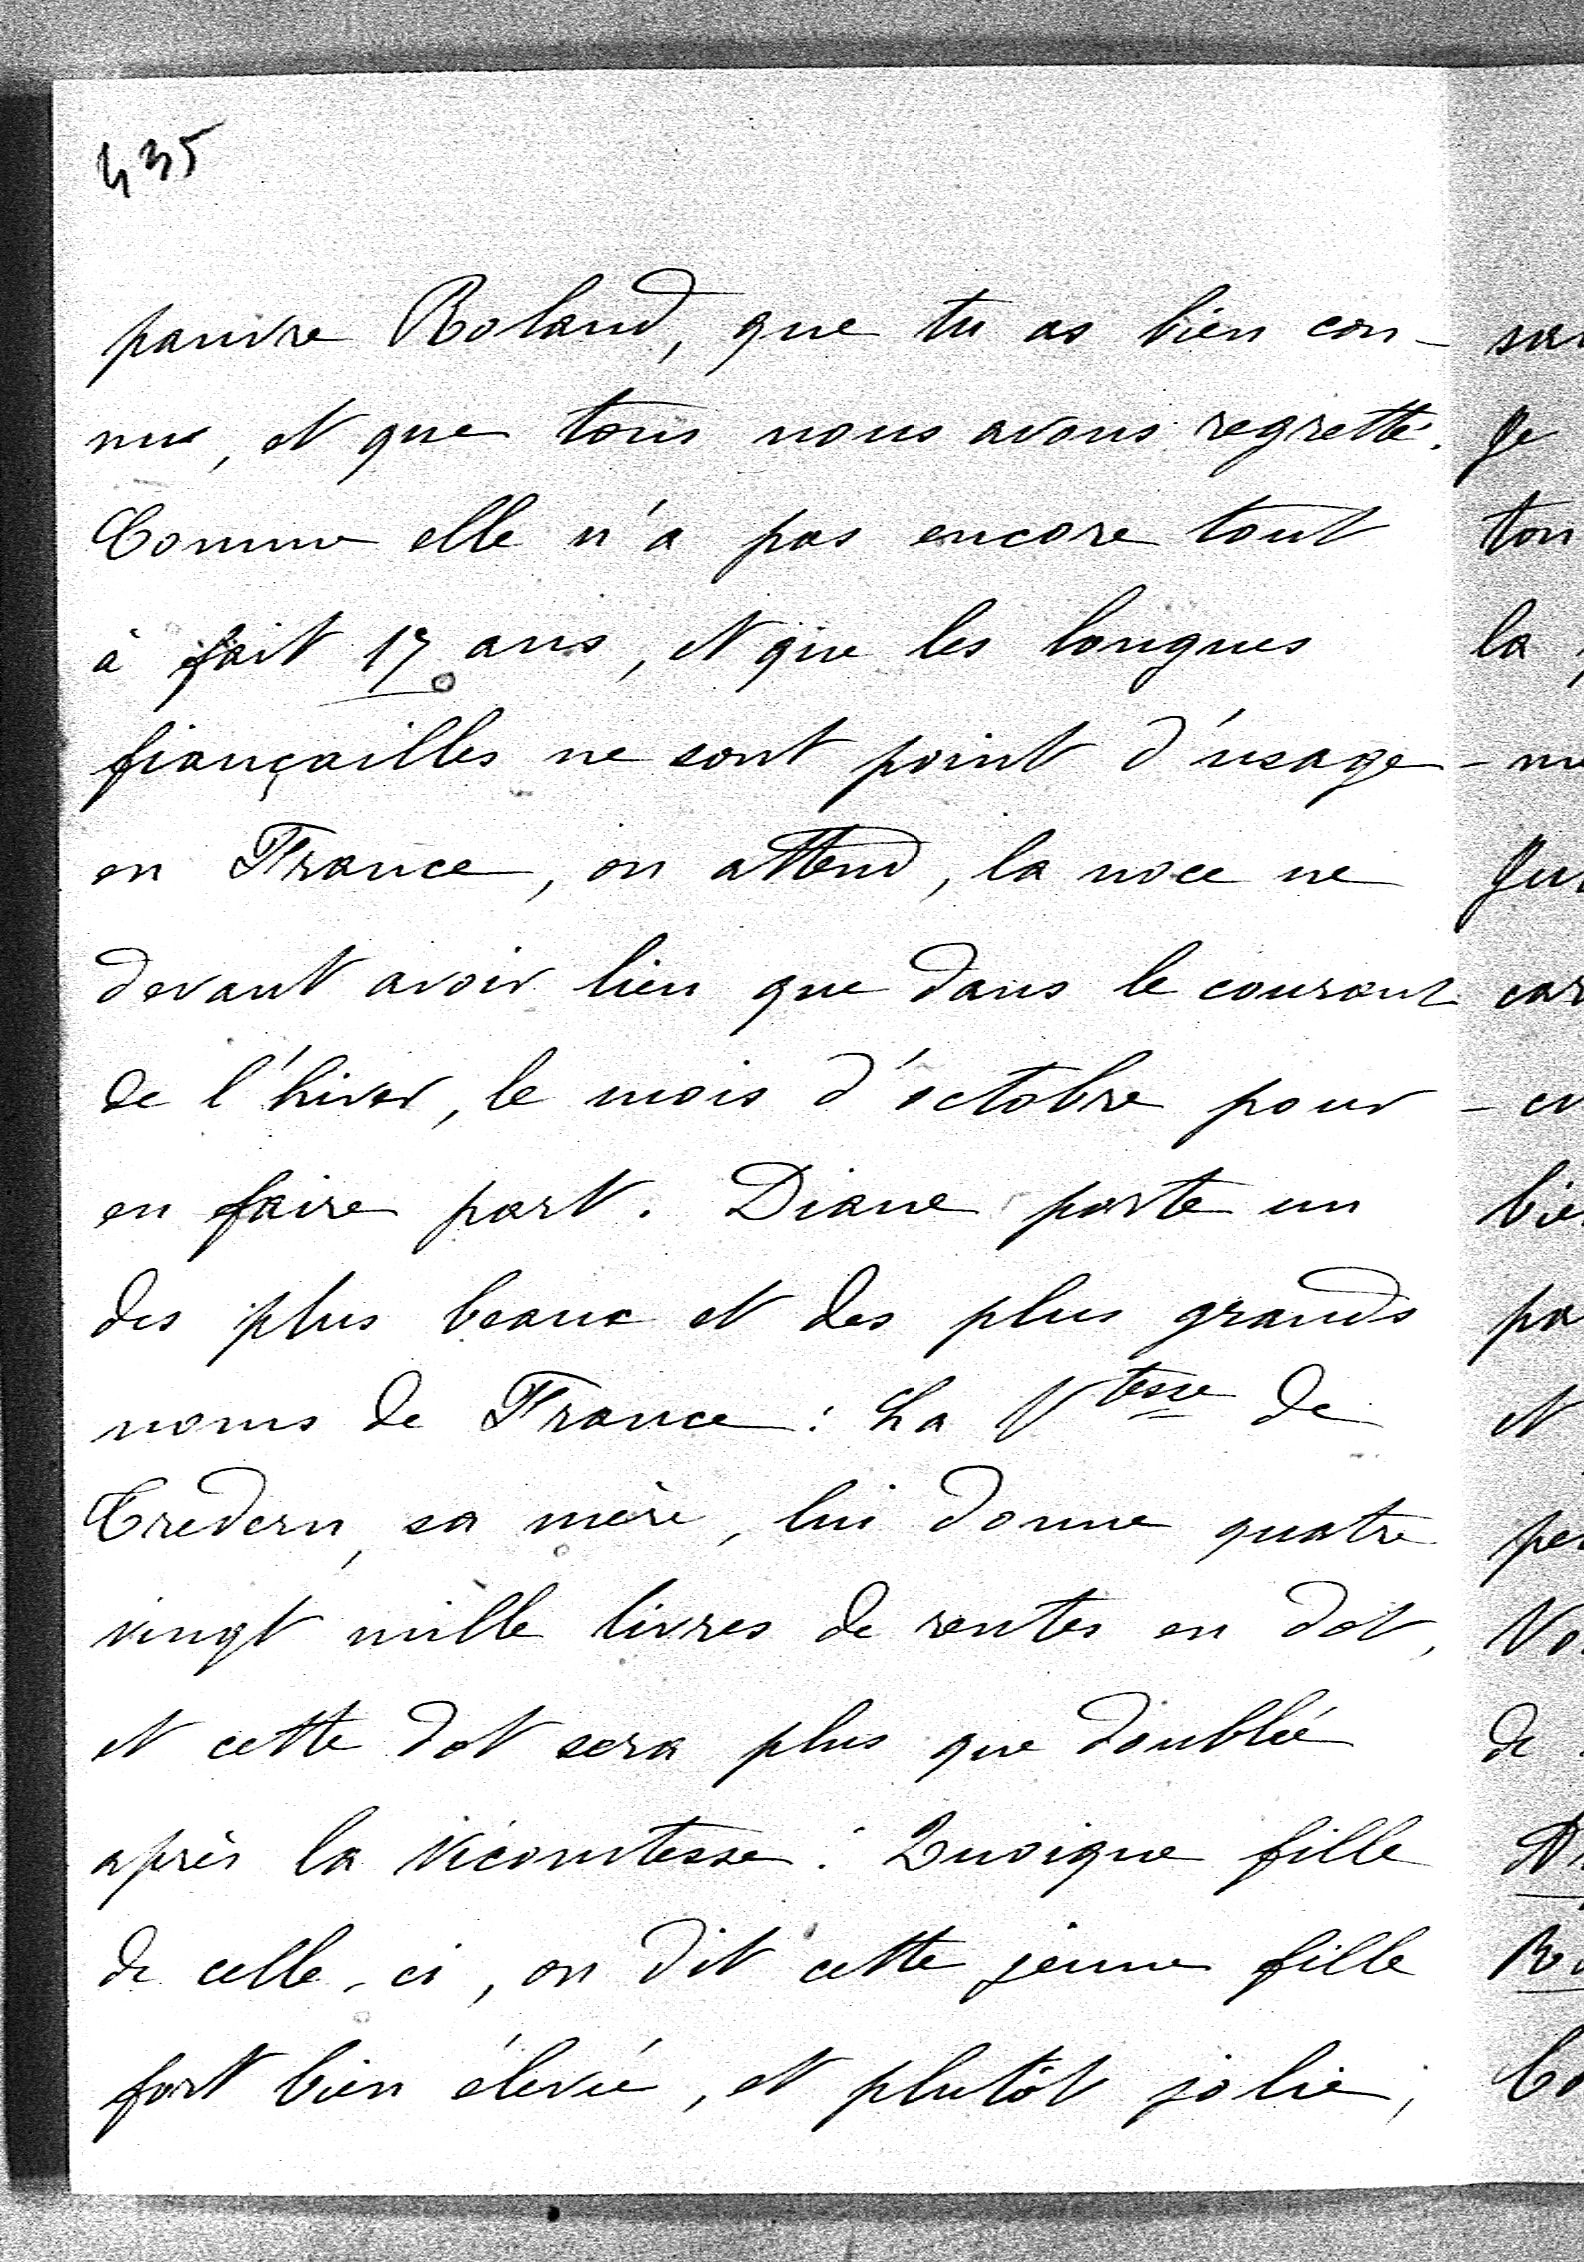 435
pauvre Roland, que tu as bien con-
nu, et que tous nous avons regretté.
Comme elle n'a pas encore tout
à fait 17 ans, et que les longues
fiançailles ne sont point d'usage
en France, on attend, la noce ne
devant avoir lieu que dans le courant
de l'hiver, le mois d'octobre pour
en faire part. Diane porte un
des plus beaux et des plus grands
noms de France : La Vtesse de
Tredern, sa mère, lui donne quatre
vingt mille livres de rentes en dot,
et cette dot sera plus que doublée
après la vicomtesse. Quoique fille
de celle-ci, on dit cette jeune fille
fort bien élevée, et plutôt jolie ;